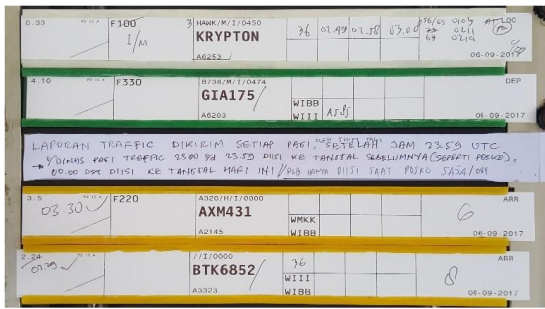 0.33 F180 3 HAWK/M/I/0450
I/M KRYPTON 36 02.49 02.58 03.00
A6253 06-09-2017
4.10 F330 B738/M/I/0474 DEP
GIA175 WIBB
A6203 WIII 06-09-2017
LAPORAN TRAFFIC DIKIRIM SETIAP PAGI, SETELAH JAM 23.59 UTC
DINAS PAGI TRAFFIC 23.00 23.59 DIISI KE TANGGAL SEBELUMNYA (SEPERTI POSKO).
00.00 DIISI KE TANGGAL HARI INI // POB HANYA DIISI SAAT POSKO SAJA
3.5 F220 A320/H/I/0000 ARR
03.30 AXM431 WMKK 6
A2145 WIBB 06-09-2017
2.24 //I/0000 ARR
BTK6852 36 8
WIII
A3323 WIBB 06-09-2017